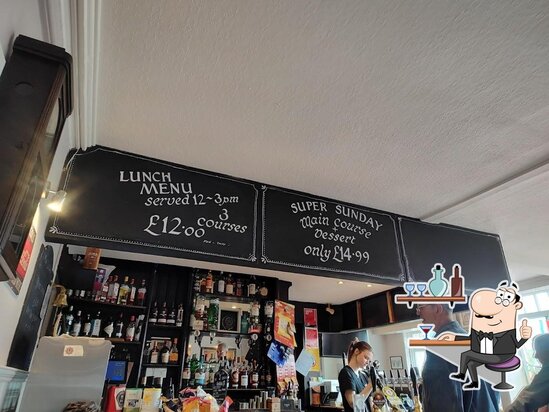 LUNCH
MENU
served 12~3pm
£12.00 3
courses
SUPER SUNDAY
Main course
+
Dessert
only £14.99